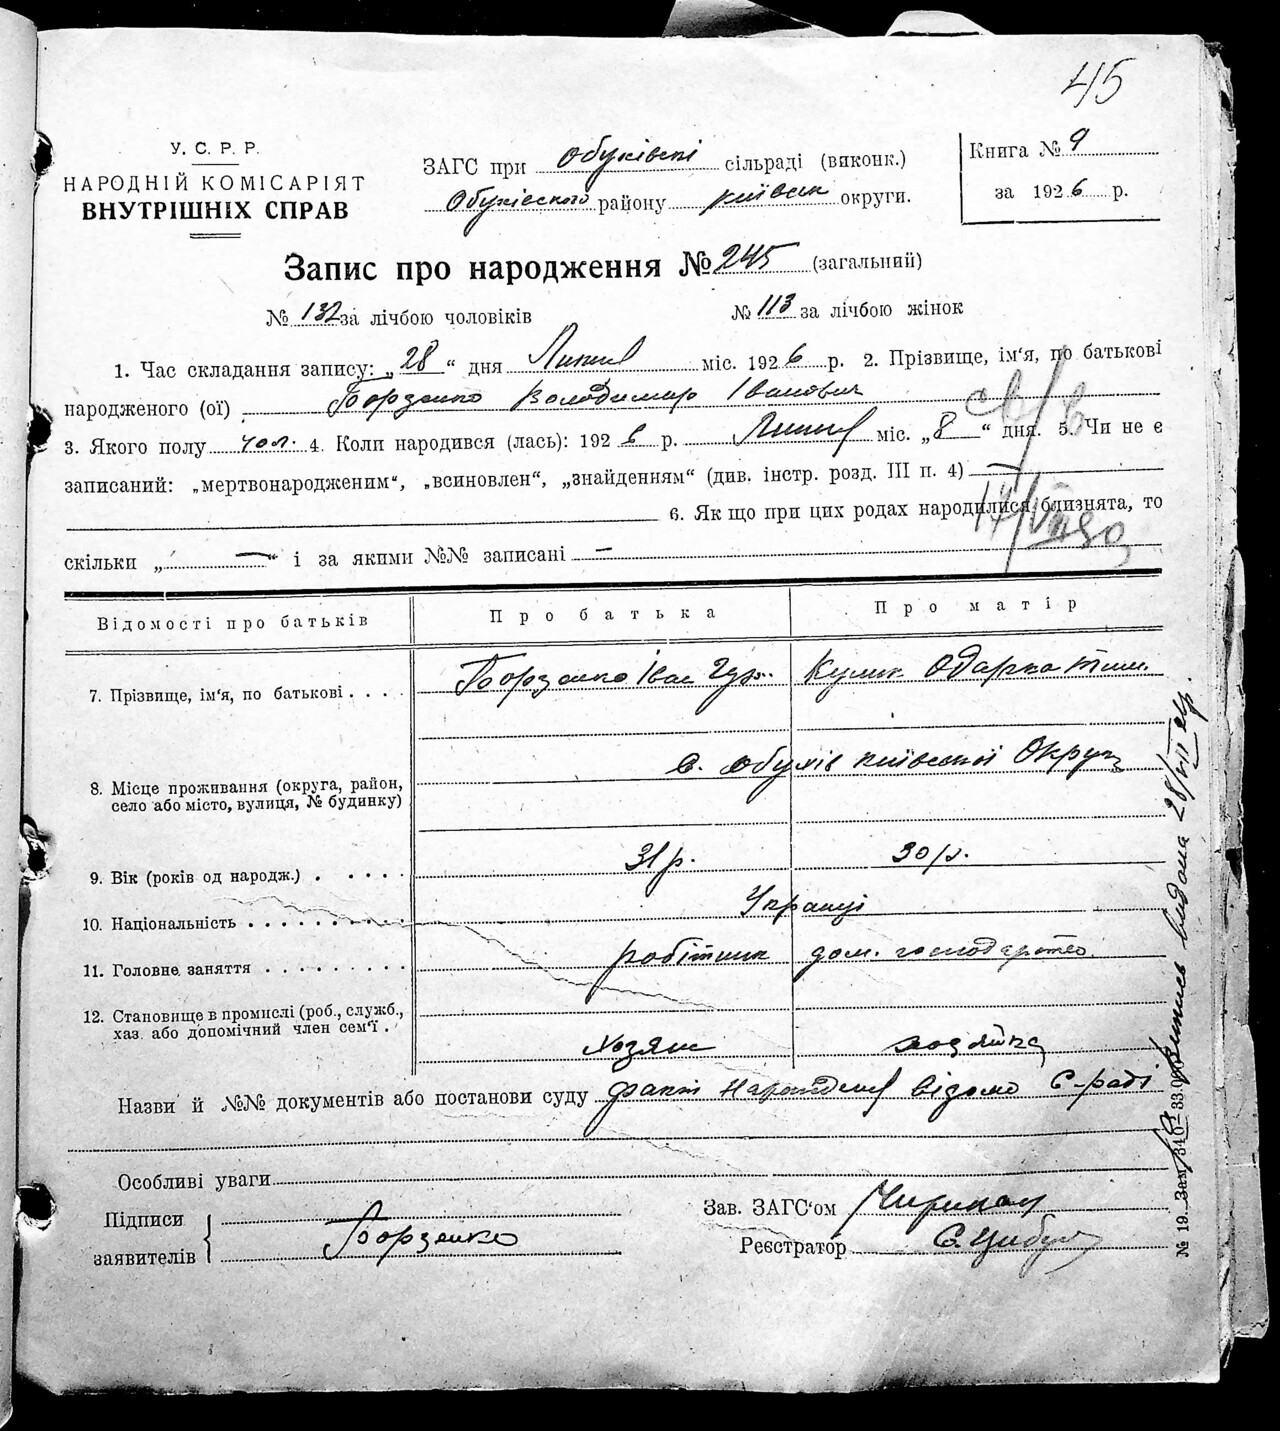 45
У. С. Р. Р.
НАРОДНІЙ КОМІСАРІЯТ
ВНУТРІШНІХ СПРАВ
ЗАГС при Обухівскі сільраді (виконк.)
Обухівского району Київськ округи.
Книга № 9
за 1926 р.
Запис про народження № 245 (загальний)
№ 132 за лічбою чоловіків № 113 за лічбою жінок
1. Час складання запису: „28“ дня Липня міс. 1926 р. 2. Прізвище, ім'я, по батькові
народженого (ої) Борзенко Володимир Іванович
3. Якого полу чол. 4. Коли народився (лась): 1926 р. Липня міс. „8“ дня. 5. Чи не є
записаний: „мертвонародженим“, „всиновлен“, „знайденням“ (див. інстр. розд. III п. 4) —
6. Як що при цих родах народилися близнята, то
скільки „—“ і за якими №№ записані —
Відомості про батьків Про батька Про матір
7. Прізвище, ім'я, по батькові . . . . Борзенко Іван Кулик Одарка Тим.
8. Місце проживання (округа, район,
село або місто, вулиця, № будинку)
с. Обухів Київської Округи
9. Вік (років од народж.) . . . . . 31 р. 30 р.
10. Національність . . . . . . . . . Українці
11. Головне заняття . . . . . . . . . робітник дом. господарство
12. Становище в промислі (роб., служб.,
хаз. або допомічний член сем'ї .
хозяін хозяйка
Назви й №№ документів або постанови суду факт народження відомо С-раді
Особливі уваги
Підписи
заявителів
Борзенко
Зав. ЗАГС'ом
Реєстратор С. Цибул
№ 19. Зам. 340—33.000
Випись видона 28/VII